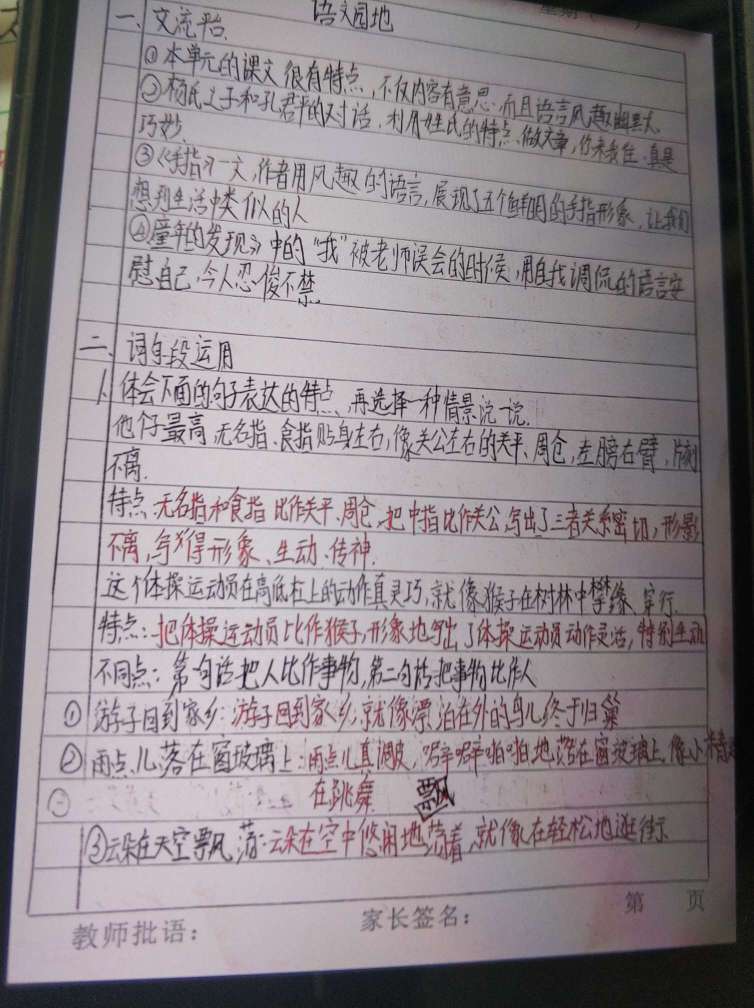 语文园地
一、交流平台
①本单元的课文很有特点,不仅内容有意思,而且语言风趣幽默。
②杨氏之子和孔君平的对话,利用姓氏的特点做文章,你来我往,真是
巧妙
③《手指》一文,作者用风趣的语言,展现了五个鲜明的手指形象,让我们
想到生活中类似的人
④《童年的发现》中的“我”被老师误会的时候,用自我调侃的语言安
慰自己,令人忍俊不禁。
二、词句段运用
1、体会下面的句子表达的特点,再选择一种情景说一说。
他个子最高,无名指、食指贴身左右,像关公左右的关平、周仓,左膀右臂,片刻
不离.
特点:无名指和食指比作关平、周仓,把中指比作关公,写出了三者关系密切,形影
不离,写得形象、生动、传神.
这个体操运动员在高低杠上的动作真灵巧,就像猴子在树林中攀缘、穿行.
特点:把体操运动员比作猴子,形象地写出了体操运动员动作灵活,特别生动
不同点:第一句话把人比作事物,第二句话把事物比作人
①游子回到家乡:游子回到家乡,就像漂泊在外的鸟儿终于归巢
②雨点儿落在窗玻璃上:雨点儿真调皮,噼噼啪啪地落在窗玻璃上,像小精灵
在跳舞 飘
③云朵在天空飘荡:云朵在空中悠闲地荡着,就像在轻松地逛街
教师批语: 家长签名: 第 页